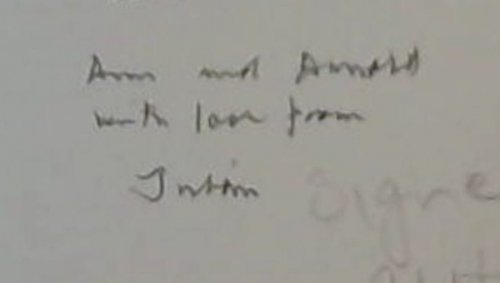 Ann and Arnold
with love from
Julian
Signe